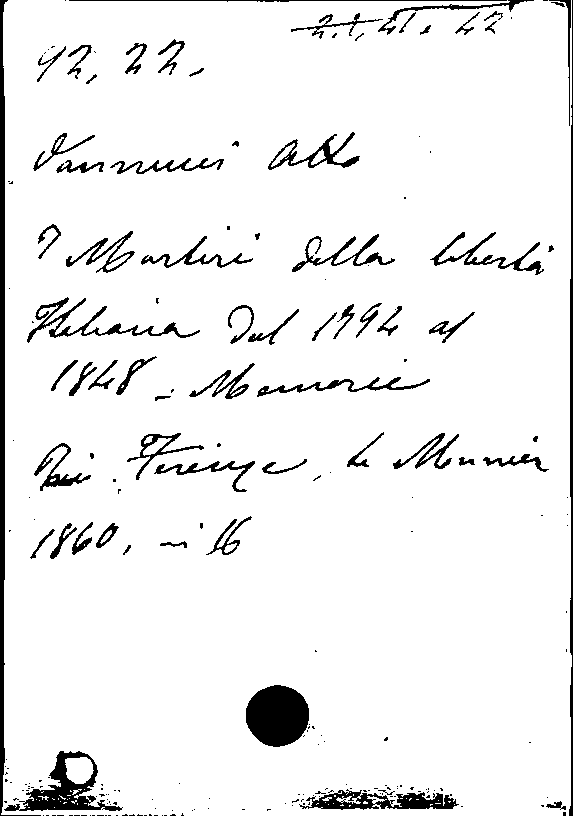 2.1.41.42
92. 22.
Vannucci Atto
I Martiri della libertà
Italiana dal 1794 al
1848 - Memorie
Firenze, Le Monnier
1860, in 16